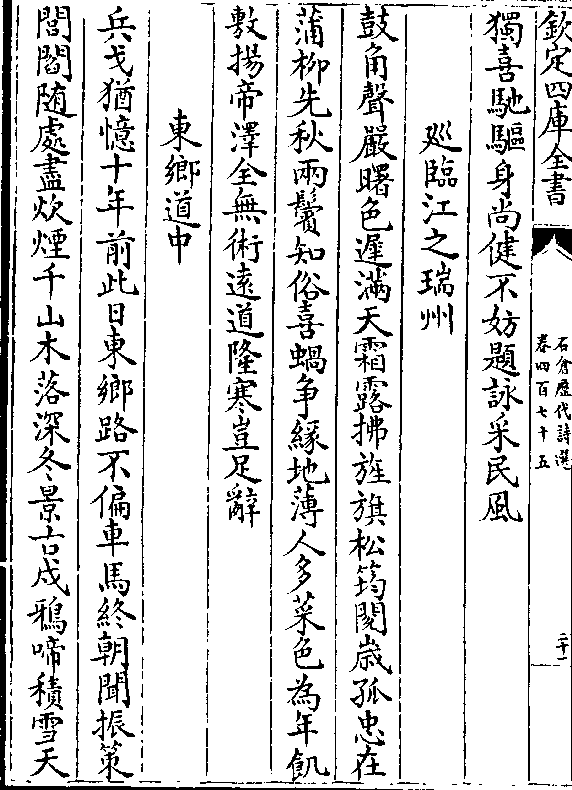 欽定四庫全書
石倉歷代詩選
卷四百七十五
二十一
獨喜馳驅身尚健不妨題詠采民風
廵臨江之瑞州
鼓角聲嚴曙色遲滿天霜露拂旌旗松筠閱歲孤忠在
蒲柳先秋兩鬢知俗喜蝸争緣地薄人多菜色為年飢
敷揚帝澤全無術遠道隆寒豈足辭
東鄉道中
兵戈猶憶十年前此日東鄉路不偏車馬終朝聞振策
閭閻随處盡炊煙千山木落深冬景古戍鴉啼積雪天